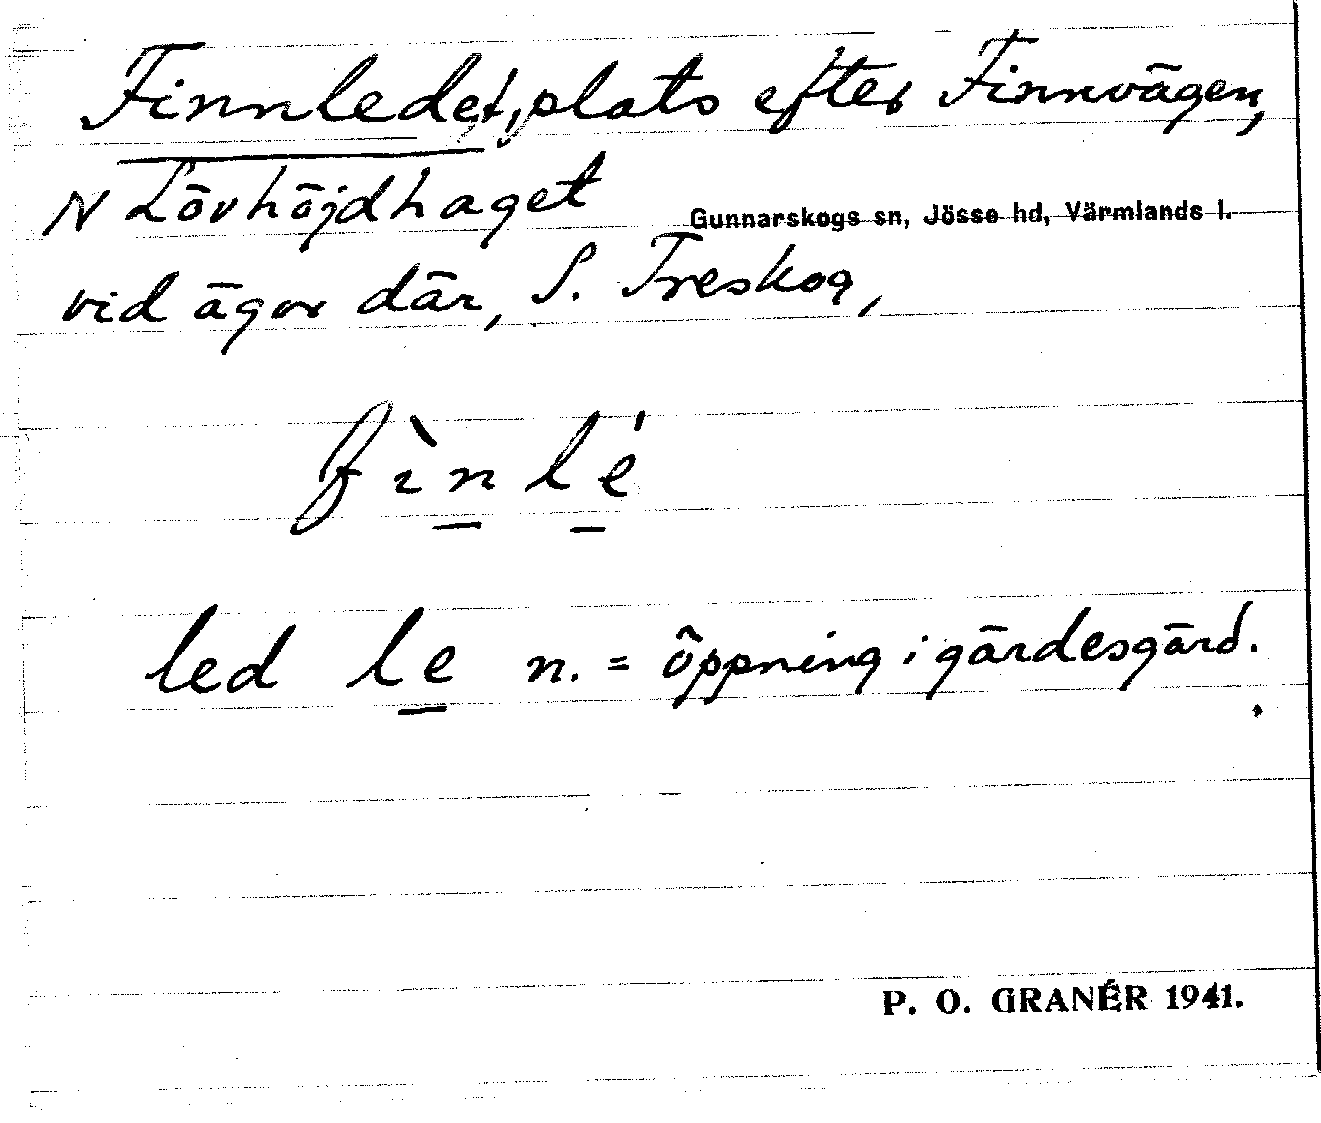 Finnledet, plats efter Finnvägen,
N Lövhöjdhaget
Gunnarskogs sn, Jösse hd, Värmlands l.
vid ägor där, S. Treskog,
fìnlé
led le n. = öppning i gärdesgård.
P. O. GRANÉR 1941.